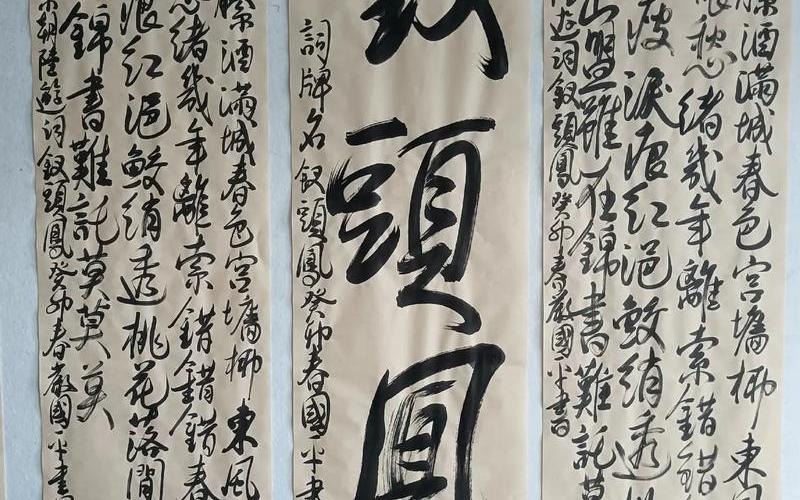 縢酒滿城春色宮墻柳東
懷愁緒幾年離索錯錯
瘦淚痕紅浥鮫綃透
山盟雖在錦書難託莫
陸遊詞釵頭鳳癸卯春嚴國平書
釵頭鳳
詞牌名釵頭鳳癸卯春國平書
縢酒滿城春色宮墻柳東風
愁緒幾年離索錯錯錯春
痕紅浥鮫綃透桃花落閒
錦書難託莫莫莫
朝陸遊詞釵頭鳳癸卯春嚴國平書